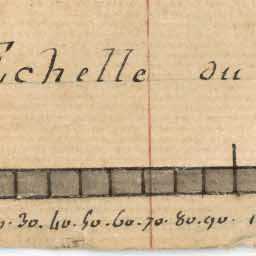 Echelle du
30. 40. 50. 60. 70. 80. 90.